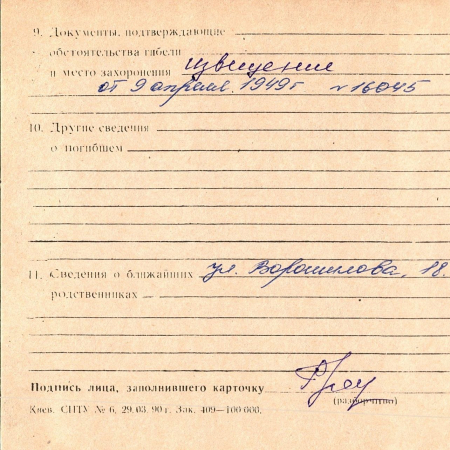 9. Документы, подтверждающие
обстоятельства гибели
и место захоронения извещение
от 9 апреля 1949 г № 16045
10. Другие сведения
о погибшем
11. Сведения о ближайших ул. Ворошилова, 18.
родственниках
Подпись лица, заполнившего карточку
(разборчиво)
Киев. СПТУ № 6, 29.03.90 г. Зак. 409—100 000.